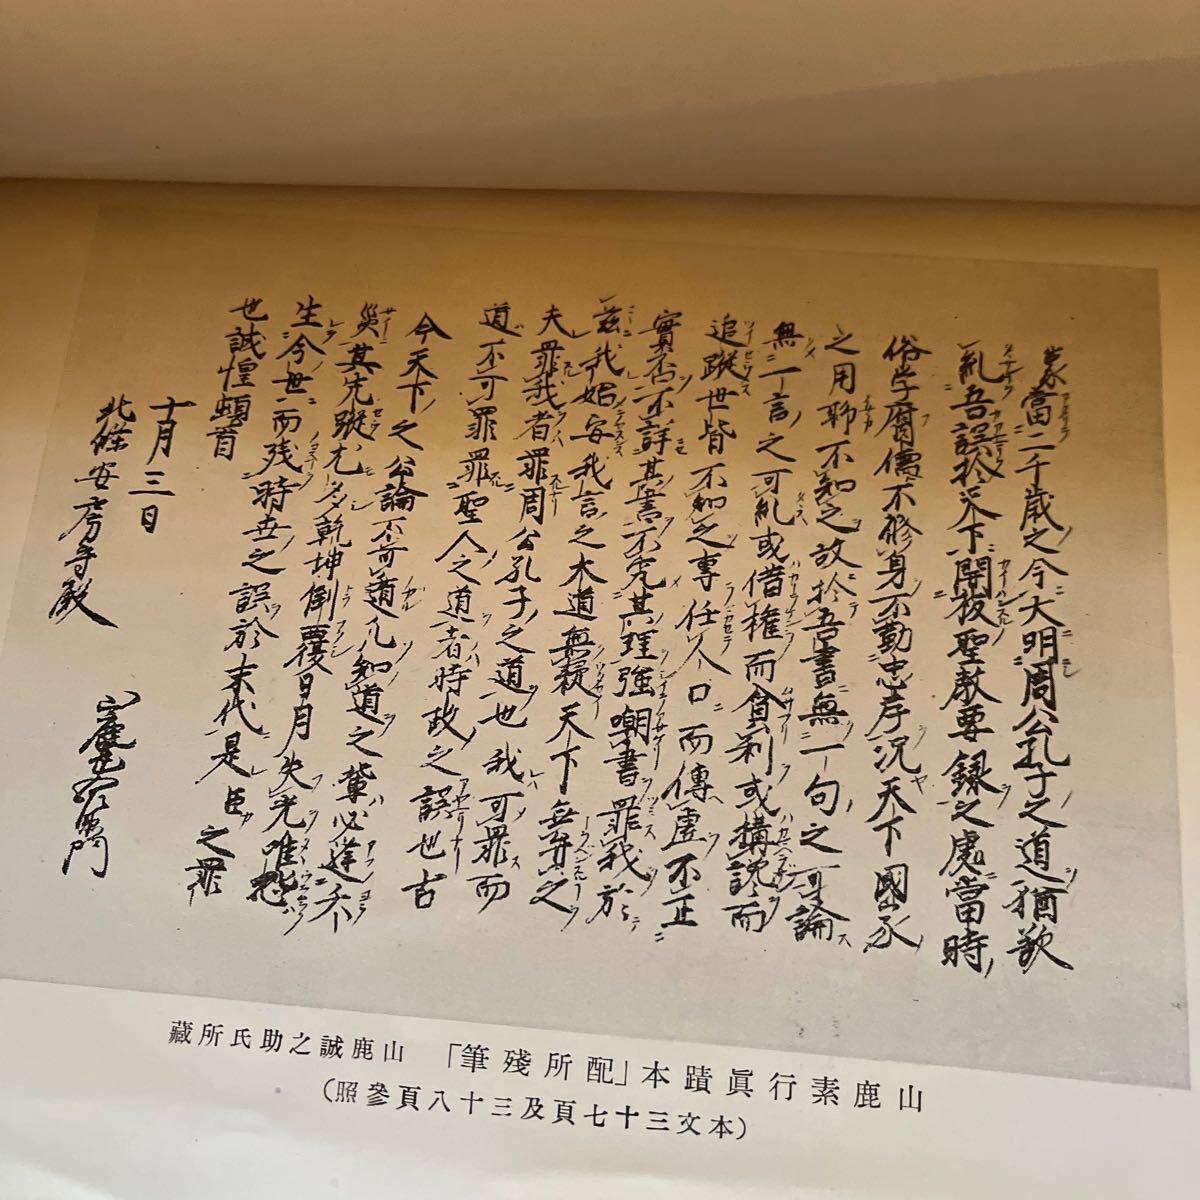 蒙當二千歳之今大明周公孔子之道猶欲
糺吾誤於天下開板聖教要録之處當時
俗学腐儒不修身不勤忠孝況天下國家
之用聊不知之故於吾書無一句之可論
無一言之可糺或借權而貪利或構讒而
追蹤世皆不知之專任人口而傳虚不正
實否不詳其書不究其理強嘲書罪我於
茲我始安我言之大道無疑天下無弁之
夫罪我者罪周公孔子之道也我可罪而
道不可罪罪聖人之道者時政之誤也古
今天下之公論不可遁凡知道之輩必逢夭
災其先蹤尤多乾坤倒覆日月失光唯怨
生今世而残時世之誤於末代是臣之罪
也誠惶頓首
十月三日
北條安房守殿
山鹿甚五左衛門
山鹿素行眞蹟本「配所殘筆」　山鹿誠之助氏所藏
（本文三十七頁及三十八頁參照）